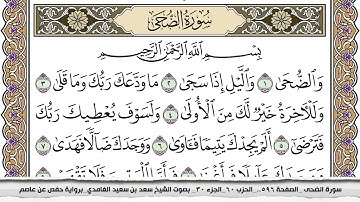 سُورَةُ الضُّحَىٰ
بِسْمِ اللَّهِ الرَّحْمَٰنِ الرَّحِيمِ
وَالضُّحَىٰ ١ وَاللَّيْلِ إِذَا سَجَىٰ ٢ مَا وَدَّعَكَ رَبُّكَ وَمَا قَلَىٰ ٣
وَلَلْآخِرَةُ خَيْرٌ لَّكَ مِنَ الْأُولَىٰ ٤ وَلَسَوْفَ يُعْطِيكَ رَبُّكَ
فَتَرْضَىٰ ٥ أَلَمْ يَجِدْكَ يَتِيمًا فَآوَىٰ ٦ وَوَجَدَكَ ضَالًّا فَهَدَىٰ ٧
سورة الضحى _الصفحة ٥٩٦_ الحزب ٦٠_الجزء ٣٠_ بصوت الشيخ سعد بن سعيد الغامدي_ برواية حفص عن عاصم